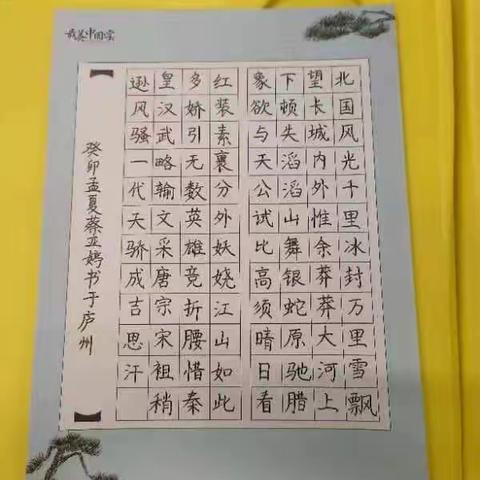 最美中国字
北国风光千里冰封万里雪飘
望长城内外惟余莽莽大河上
下顿失滔滔山舞银蛇原驰腊
象欲与天公试比高须晴日看
红装素裹分外妖娆江山如此
多娇引无数英雄竞折腰惜秦
皇汉武略输文采唐宗宋祖稍
逊风骚一代天骄成吉思汗
癸卯孟夏蔡亚娉书于庐州